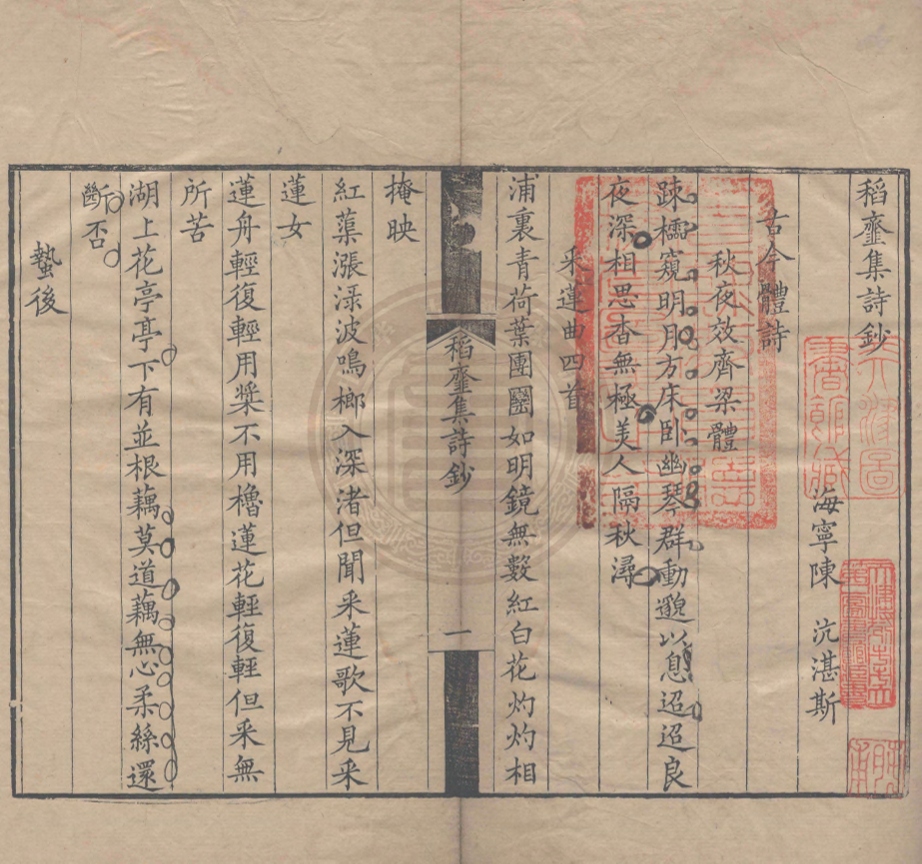 稻韲集詩鈔
海寧陳 沆湛斯
古今體詩
秋夜效齊梁體
踈櫺窺明月方床臥幽琴群動邈以息迢迢良
夜深相思杳無極美人隔秋潯
釆蓮曲四首
浦裏青荷葉團團如明鏡無數紅白花灼灼相
掩映
紅蕖漲淥波鳴榔入深渚但聞釆蓮歌不見釆
蓮女
蓮舟輕復輕用槳不用櫓蓮花輕復輕但釆無
所苦
湖上花亭亭下有並根藕莫道藕無心柔絲還
斷否
蟄後
稻韲集詩鈔
一